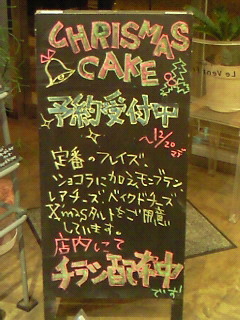 CHRISMAS
CAKE
予約受付中
～12/20まで
定番のフレイズ、
ショコラに加えモンブラン、
レアチーズ、ベイクドチーズ
Xmasタルトをご用意
しています。
店内にて
チラシ配布中
です!
Le Vent